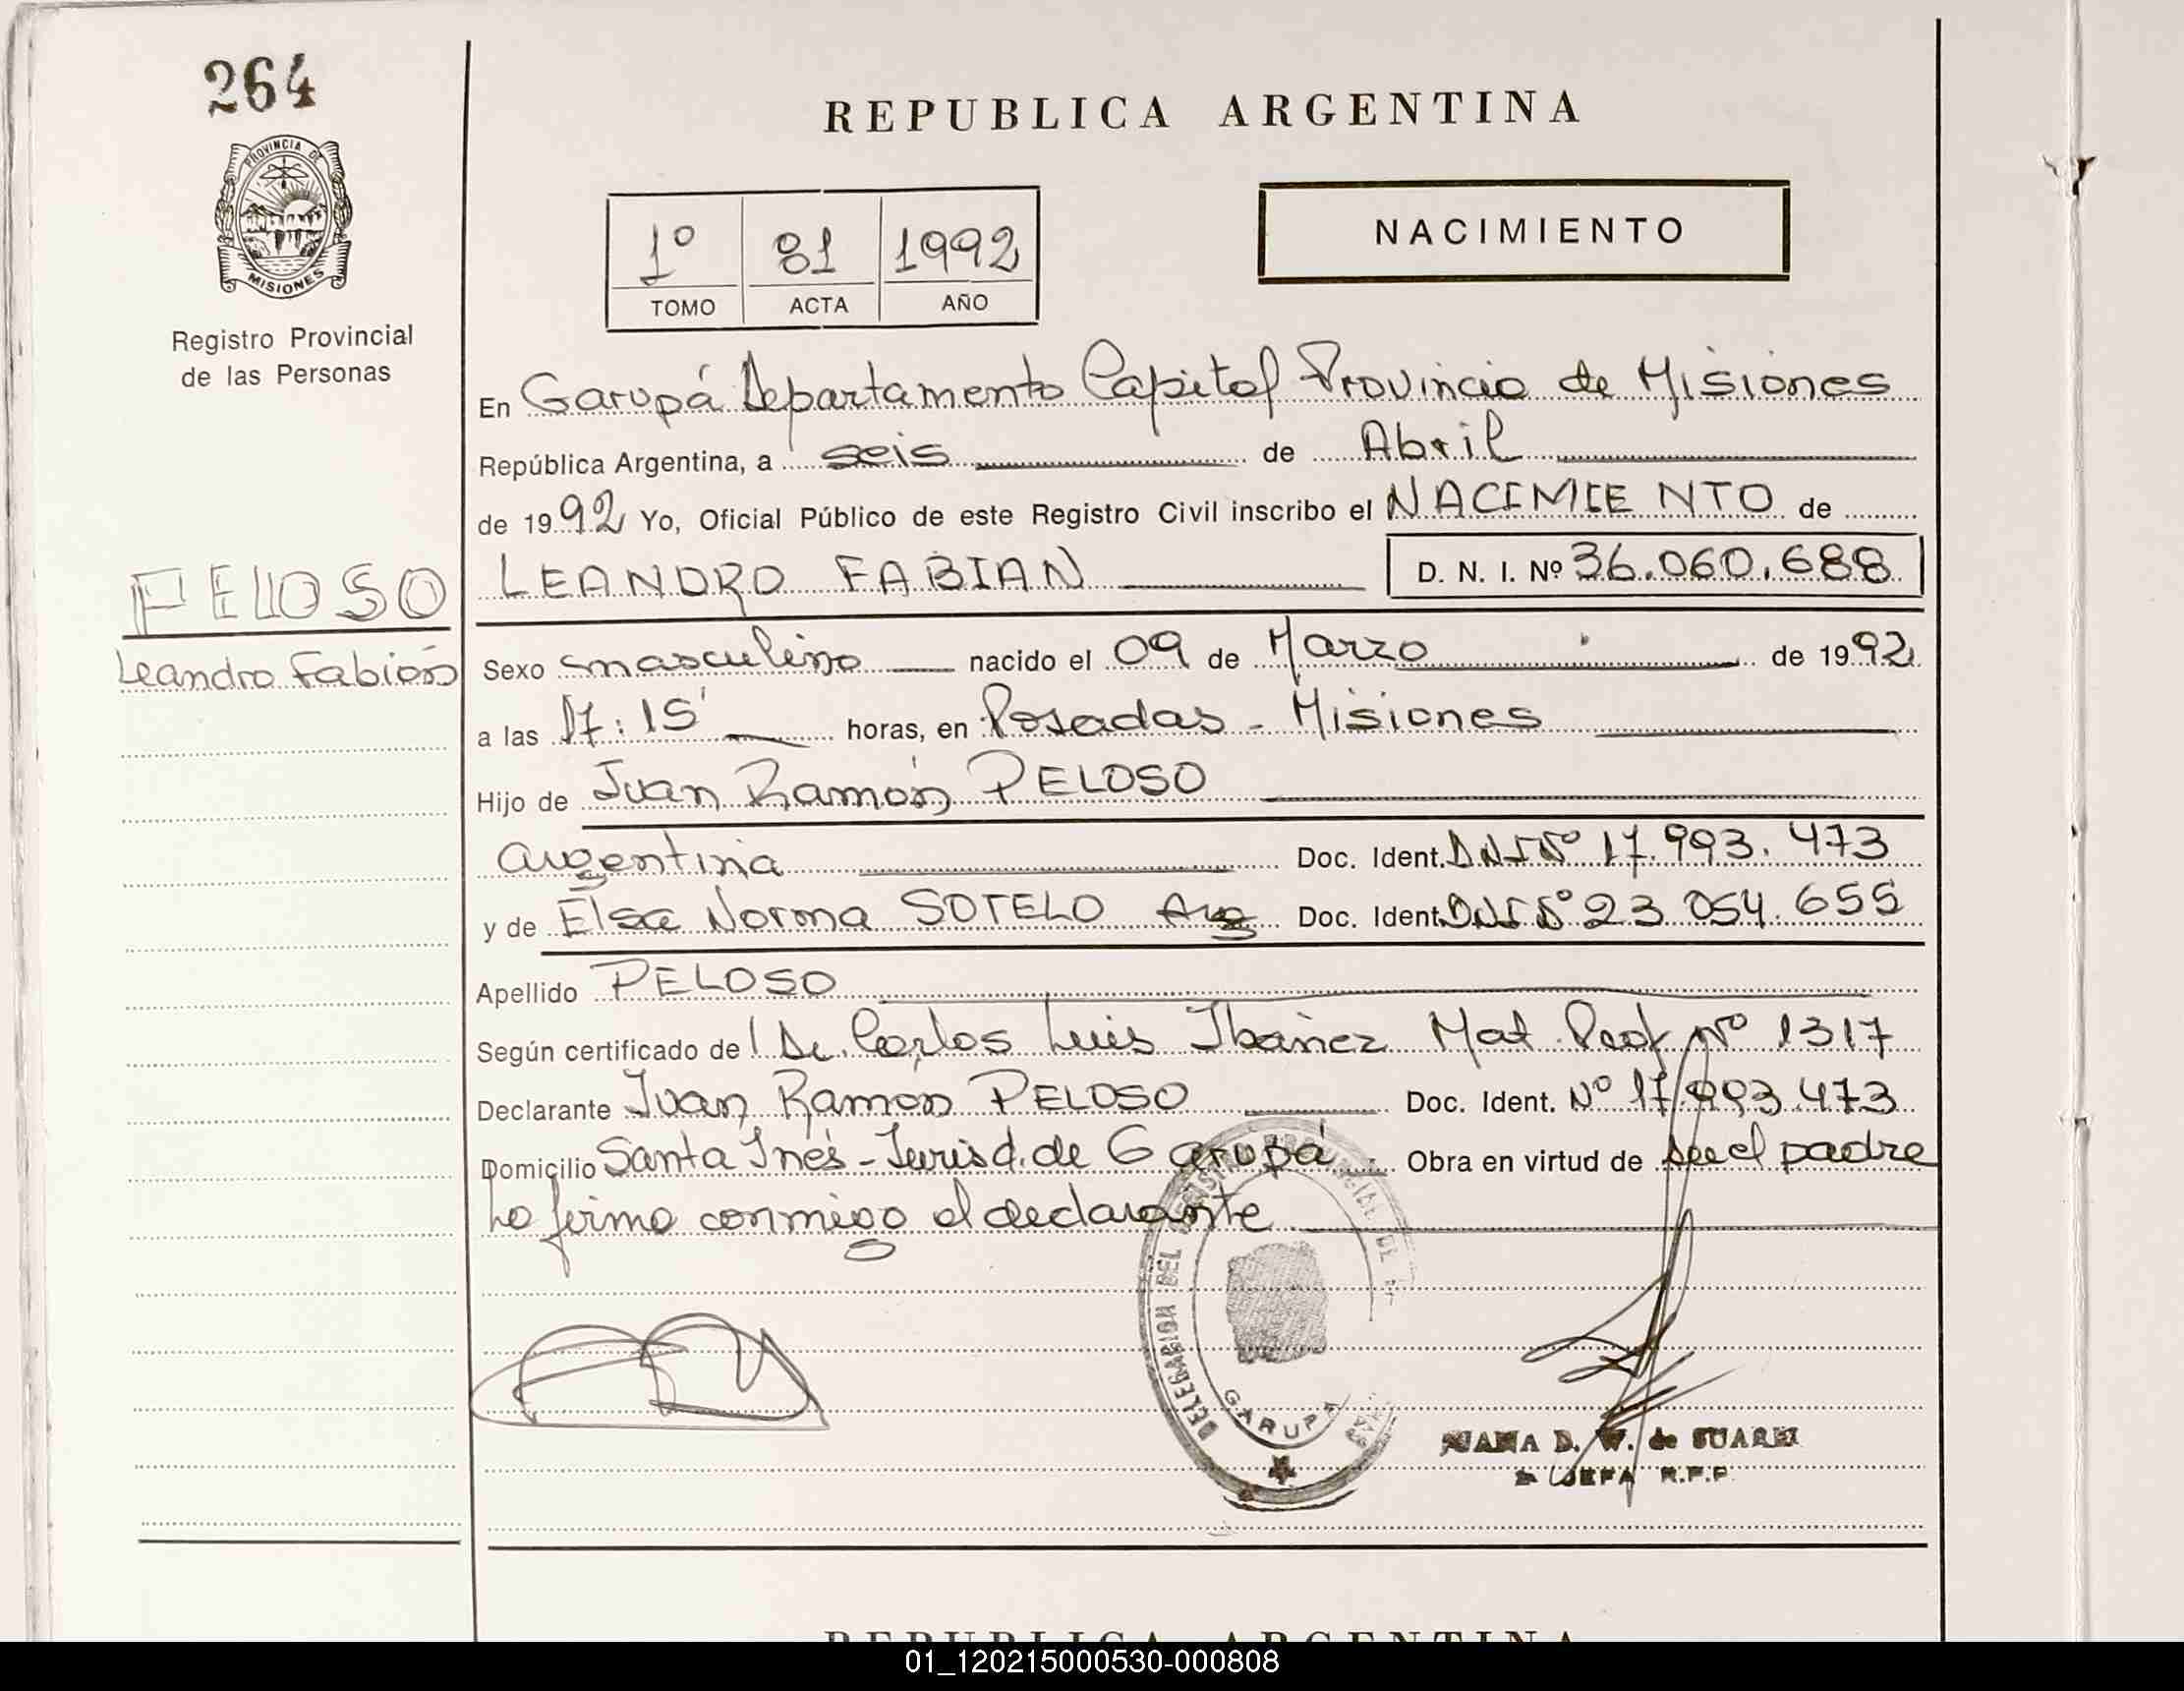 264
REPUBLICA ARGENTINA
PROVINCIA DE
MISIONES
Registro Provincial
de las Personas
1º 81 1992
TOMO ACTA AÑO
NACIMIENTO
En Garupá Departamento Capital Provincia de Misiones
República Argentina, a seis de Abril
de 1992 Yo, Oficial Público de este Registro Civil inscribo el NACIMIENTO de
LEANDRO FABIAN D. N. I. Nº 36.060.688
PELOSO
Leandro Fabián
Sexo masculino nacido el 09 de Marzo de 1992
a las 17:15' horas, en Posadas - Misiones
Hijo de Juan Ramón PELOSO
Argentina Doc. Ident. DNI Nº 17.993.473
y de Elsa Norma SOTELO Arg Doc. Ident. DNI Nº 23 054.655
Apellido PELOSO
Según certificado de Dr. Carlos Luis Ibañez Mat. Prof Nº 1317
Declarante Juan Ramón PELOSO Doc. Ident. Nº 17.993.473
Domicilio Santa Inés - Jurisd. de Garupá Obra en virtud de ser el padre
Lo firma conmigo el declarante
DELEGACION DEL
GARUPA
JUANA D. W. de SUAREZ
JEFA R.P.P.
REPUBLICA ARGENTINA
01_120215000530-000808